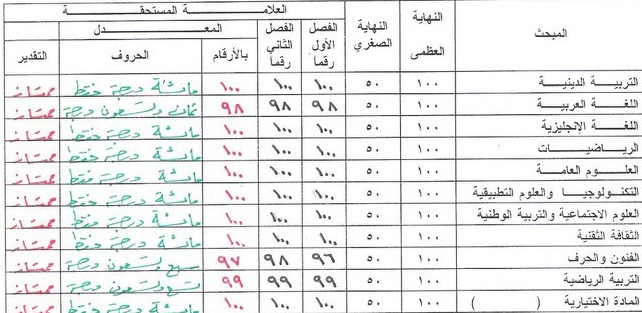 العلامــة المستحقــة
المبحث النهاية العظمى النهاية الصغرى الفصل الأول رقماً الفصل الثاني رقماً المعــدل
بالأرقام الحروف التقدير
التربية الدينية ١٠٠ ٥٠ ١٠٠ ١٠٠ ١٠٠ مائة درجة فقط ممتاز
اللغة العربية ١٠٠ ٥٠ ٩٨ ٩٨ ٩٨ ثمان وتسعون درجة ممتاز
اللغة الإنجليزية ١٠٠ ٥٠ ١٠٠ ١٠٠ ١٠٠ مائة درجة فقط ممتاز
الرياضيات ١٠٠ ٥٠ ١٠٠ ١٠٠ ١٠٠ مائة درجة فقط ممتاز
العلوم العامة ١٠٠ ٥٠ ١٠٠ ١٠٠ ١٠٠ مائة درجة فقط ممتاز
التكنولوجيا والعلوم التطبيقية ١٠٠ ٥٠ ١٠٠ ١٠٠ ١٠٠ مائة درجة فقط ممتاز
العلوم الاجتماعية والتربية الوطنية ١٠٠ ٥٠ ١٠٠ ١٠٠ ١٠٠ مائة درجة فقط ممتاز
الثقافة التقنية ١٠٠ ٥٠ ١٠٠ ١٠٠ ١٠٠ مائة درجة فقط ممتاز
الفنون والحرف ١٠٠ ٥٠ ٩٦ ٩٨ ٩٧ سبع وتسعون درجة ممتاز
التربية الرياضية ١٠٠ ٥٠ ٩٩ ٩٩ ٩٩ تسع وتسعون درجة ممتاز
المادة الاختيارية ( ) ١٠٠ ٥٠ ١٠٠ ١٠٠ ١٠٠ مائة درجة فقط ممتاز